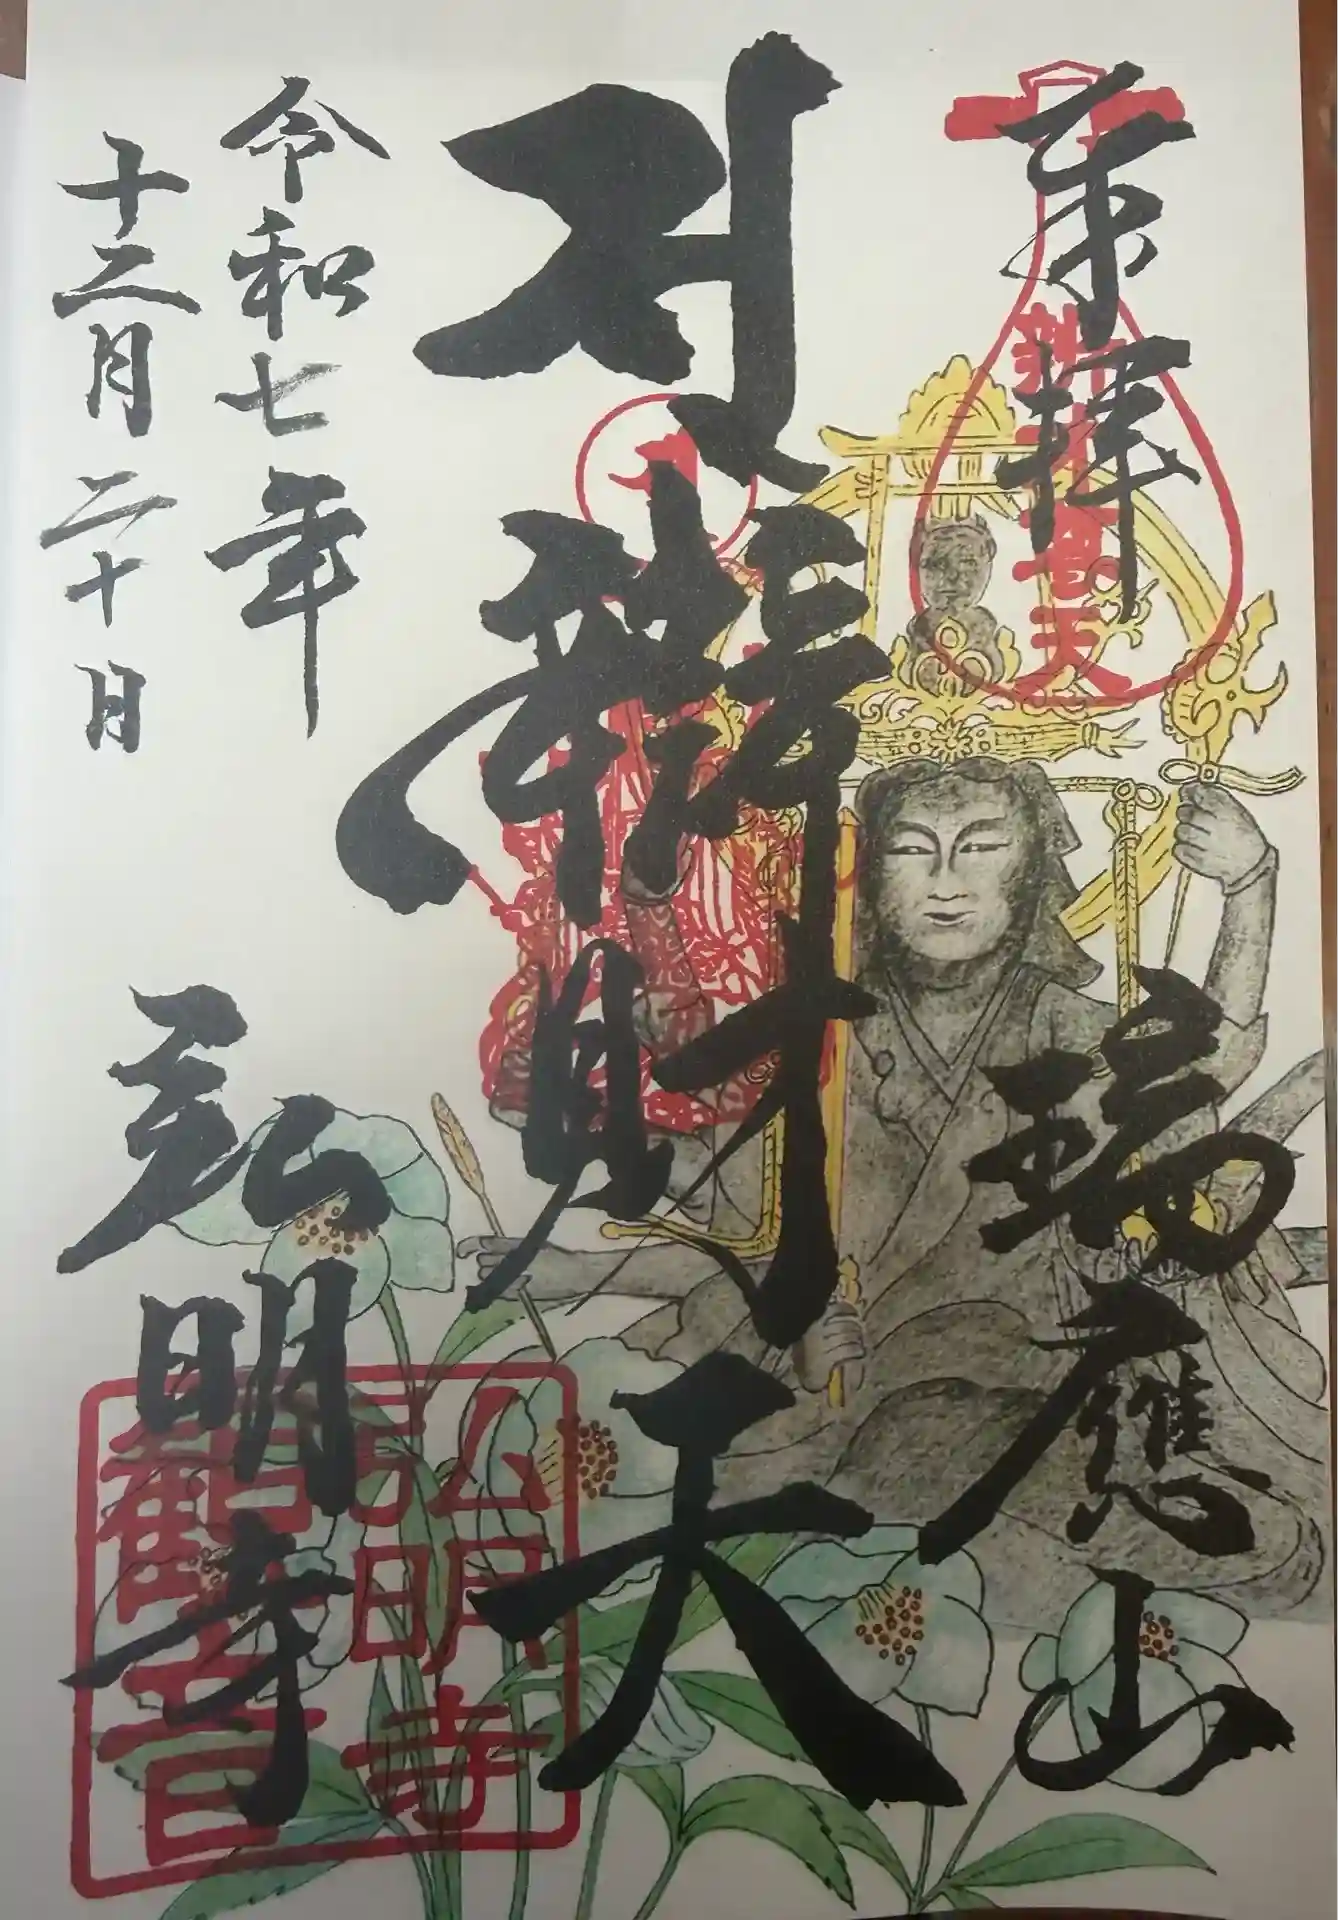 奉拝
瑞應山
辨財天
令和七年
十二月二十日
弘明寺
弘明寺
觀音